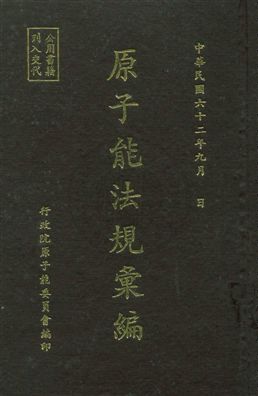 中華民國六十二年九月　日
原子能法規彙編
公用書籍
列入交代
行政院原子能委員會編印